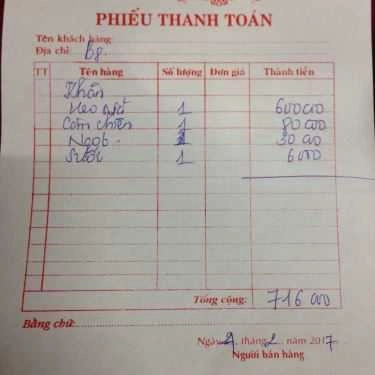 PHIẾU THANH TOÁN
Tên khách hàng:
Địa chỉ: B8
TT Tên hàng Số lượng Đơn giá Thành tiền
Khăn
Heo 1 600000
Cơm chiên 1 80000
Ngọt 30000
Suối 1 6000
Tổng cộng: 716000
Bằng chữ:
Ngày 9 tháng 2 năm 2017
Người bán hàng